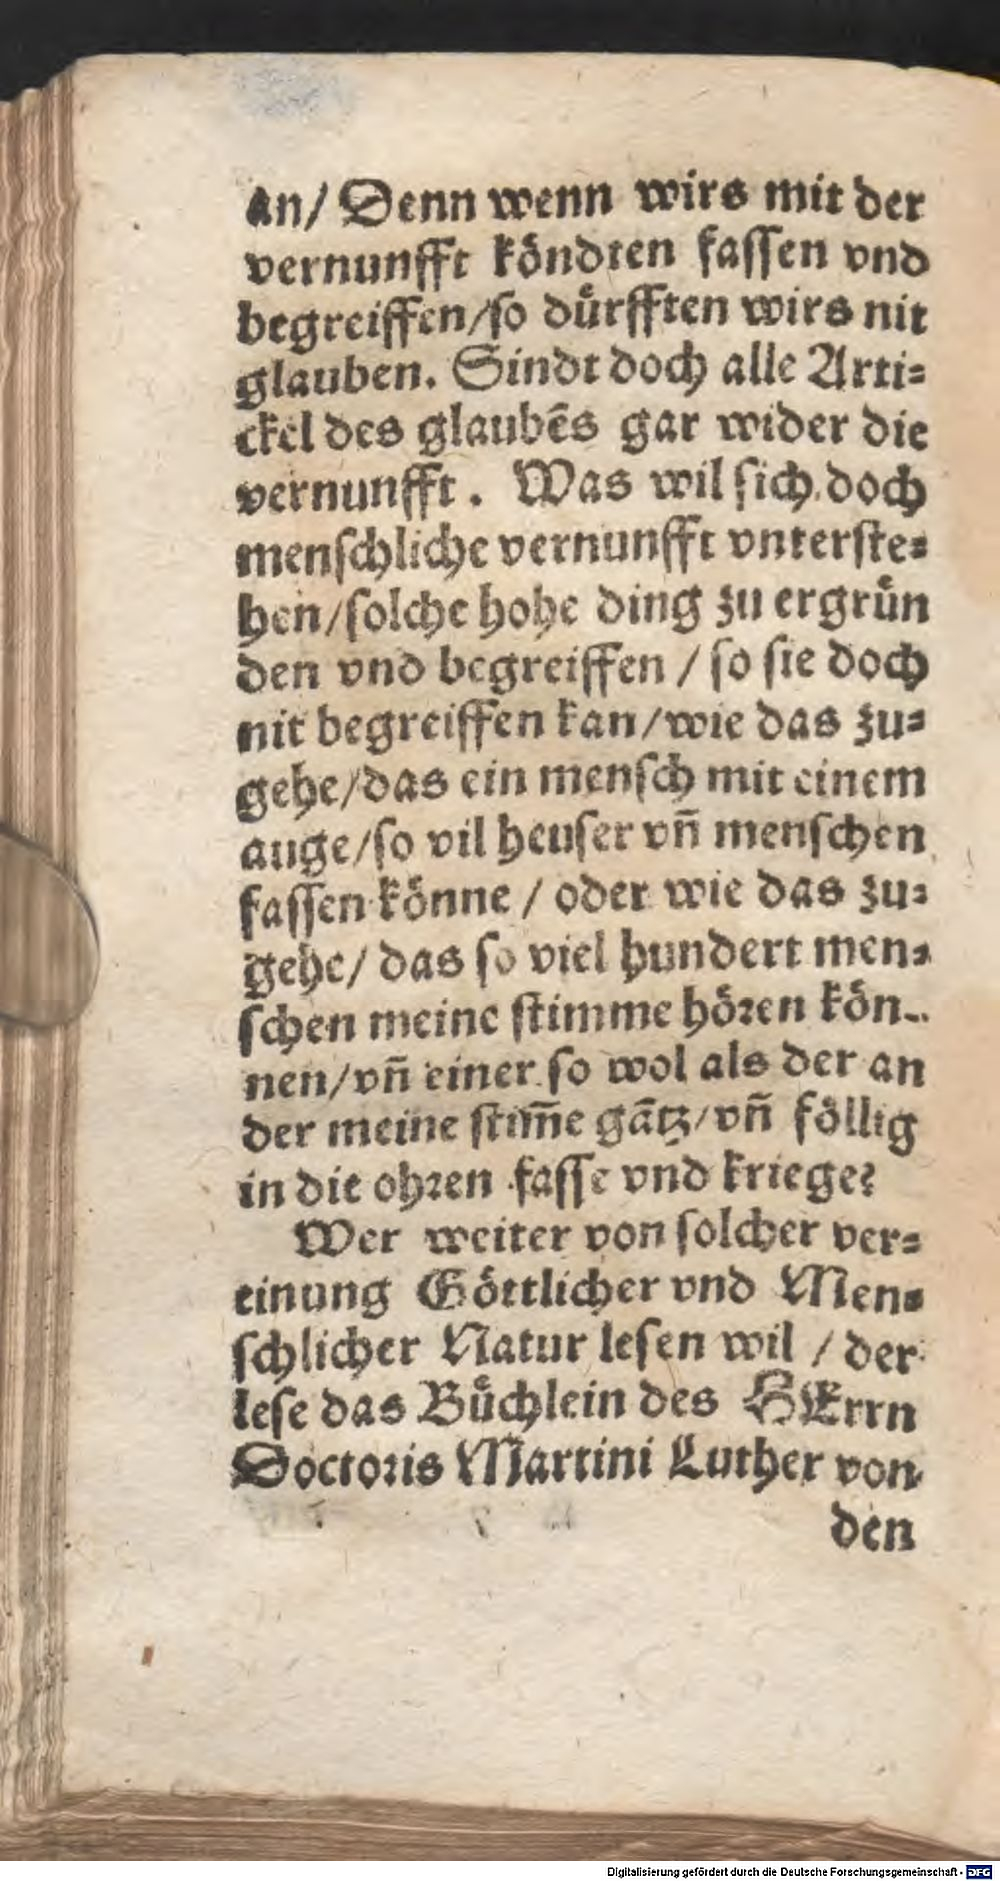 an/ Denn wenn wirs mit der
vernunfft köndten fassen vnd
begreiffen/so dürfften wirs nit
glauben. Sindt doch alle Arti-
ckel des glaubēs gar wider die
vernunfft. Was wil sich doch
menschliche vernunfft vnterste-
hen/solche hohe ding zu ergrün
den vnd begreiffen / so sie doch
nit begreiffen kan/wie das zu-
gehe/das ein mensch mit einem
auge/so vil heuser vn̄ menschen
fassen könne / oder wie das zu-
gehe/ das so viel hundert men-
schen meine stimme hören kön-
nen/vn̄ einer so wol als der an
der meine stim̄e gātz/vn̄ föllig
in die ohren fasse vnd kriege?
Wer weiter von solcher ver-
einung Göttlicher vnd Men-
schlicher Natur lesen wil / der
lese das Büchlein des HErrn
Doctoris Martini Luther von
den
Digitalisierung gefördert durch die Deutsche Forschungsgemeinschaft - DFG